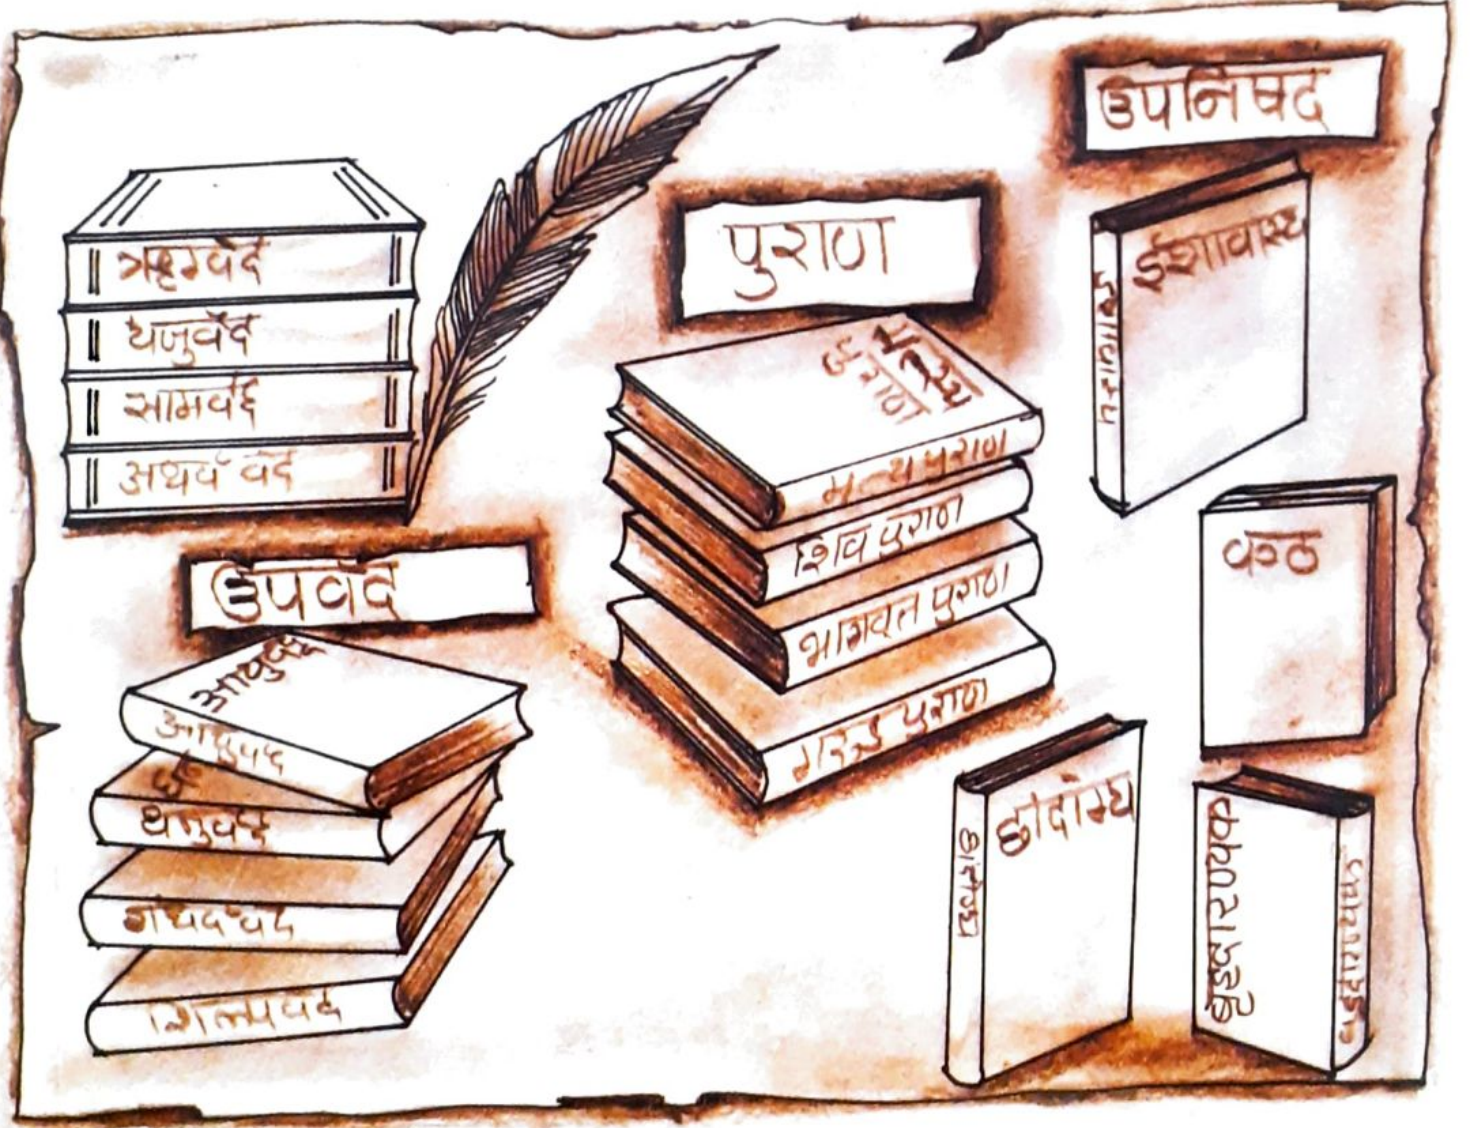 ऋग्वेद
यजुर्वेद
सामवेद
अथर्व वेद
उपवेद
आयुर्वेद
आयुर्वेद
धनुर्वेद
गंधर्ववेद
शिल्पवेद
पुराण
मत्स्य
पुराण
मत्स्य पुराण
शिव पुराण
भागवत पुराण
गरुड पुराण
उपनिषद
ईशावास्य
ईशावास्य
कठ
छांदोग्य
छांदोग्य